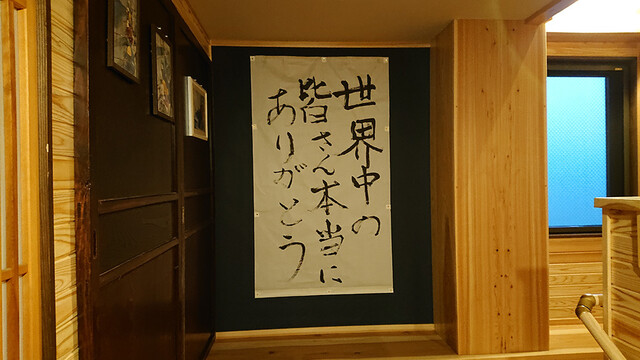 世界中の
皆さん本当に
ありがとう